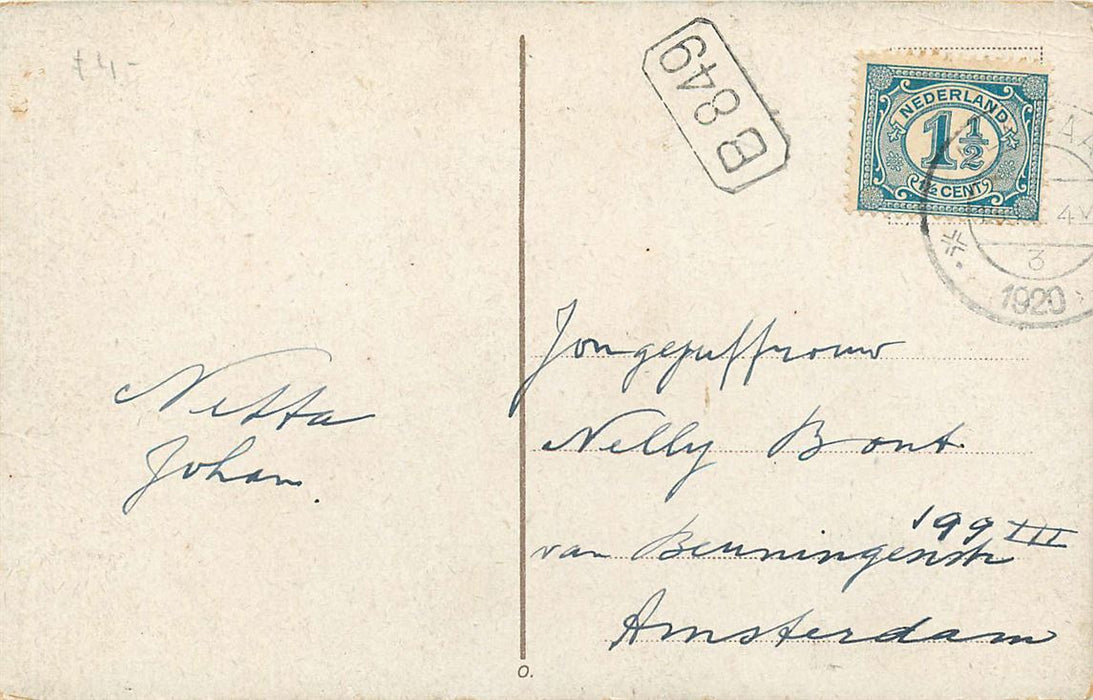 B849
NEDERLAND
1½
1½ CENT
3
1920
Netta
Johan.
Jongejuffrouw
Nelly Bont
199 III
van Beuningenstr
Amsterdam
O.